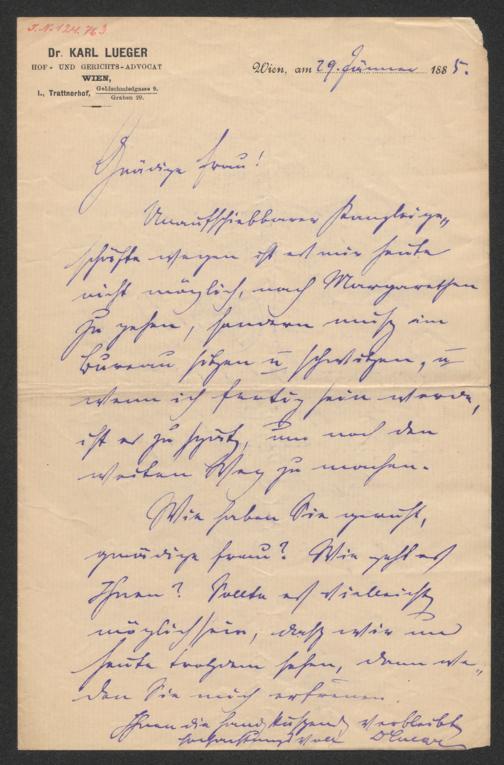 J.N. 124.763
Dr. KARL LUEGER
HOF- UND GERICHTS-ADVOCAT
WIEN,
I., Trattnerhof, Goldschmiedgasse 9.
Graben 29.
Wien, am 29. Jänner 1885.
Gnädige Frau!
Unaufschiebbarer Kanzleige„
schäfte wegen ist es mir heute
nicht möglich, nach Margarethen
zu gehen, sondern muß im
Bureau sitzen u schwitzen, u
wenn ich fertig sein werde,
ist es zu spät, um noch den
weiten Weg zu machen.
Wie haben Sie geruht,
gnädige Frau? Wie geht es
Ihnen? Sollte es vielleicht
möglich sein, daß wir uns
heute trotzdem sehen, dann wer„
den Sie mich erfreuen.
Ihnen die Hand küssend, verbleibt
hochachtungsvoll DLueger